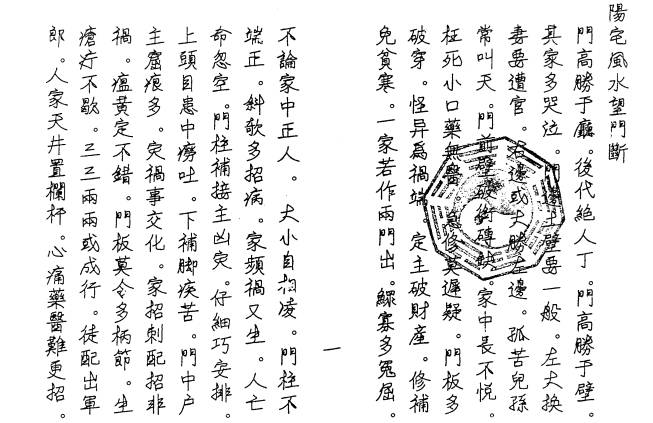 陽宅風水望門斷
門高勝于廳。後代絶人丁。門高勝于壁。
其家多哭泣。門邊土壁要一般。左大換
妻要遭官。右邊或大勝左邊。孤苦兒孫
常叫天。門前壁破街磚缺。家中長不悅。
枉死小口藥無醫。急修莫遲疑。門板多
破穿。怪异為禍端。定主破財產。修補
免貧寒。一家若作兩門出。鰥寡多冤屈。
一
不論家中正人。大小自相凌。門柱不
端正。斜欹多招病。家頻禍又生。人亡
命忽空。門柱補接主凶灾。仔細巧安排。
上頭目患中癆吐。下補脚疾苦。門中户
主窟痕多。灾禍事交化。家招刺配招非
禍。瘟黄定不錯。門板莫令多柄節。生
瘡疔不歇。三三兩兩或成行。徒配出軍
郎。人家天井置欄杆。心痛藥醫難更招。